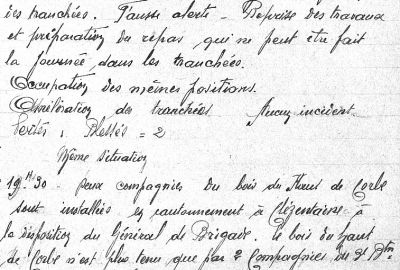 des tranchées. Fausse alerte - Reprise des travaux
et préparation du repas qui ne peut être fait
la journée dans les tranchées.
Occupation des mêmes positions.
Amélioration des tranchées. Aucun incident.
Pertes : Blessés = 2
Même situation
19H30 - Deux compagnies du bois du Haut de Corbe
sont installées en cantonnement à Clézentaine à
la disposition du Général de Brigade le bois du haut
de Corbe n'est plus tenu que par 2 Compagnies du